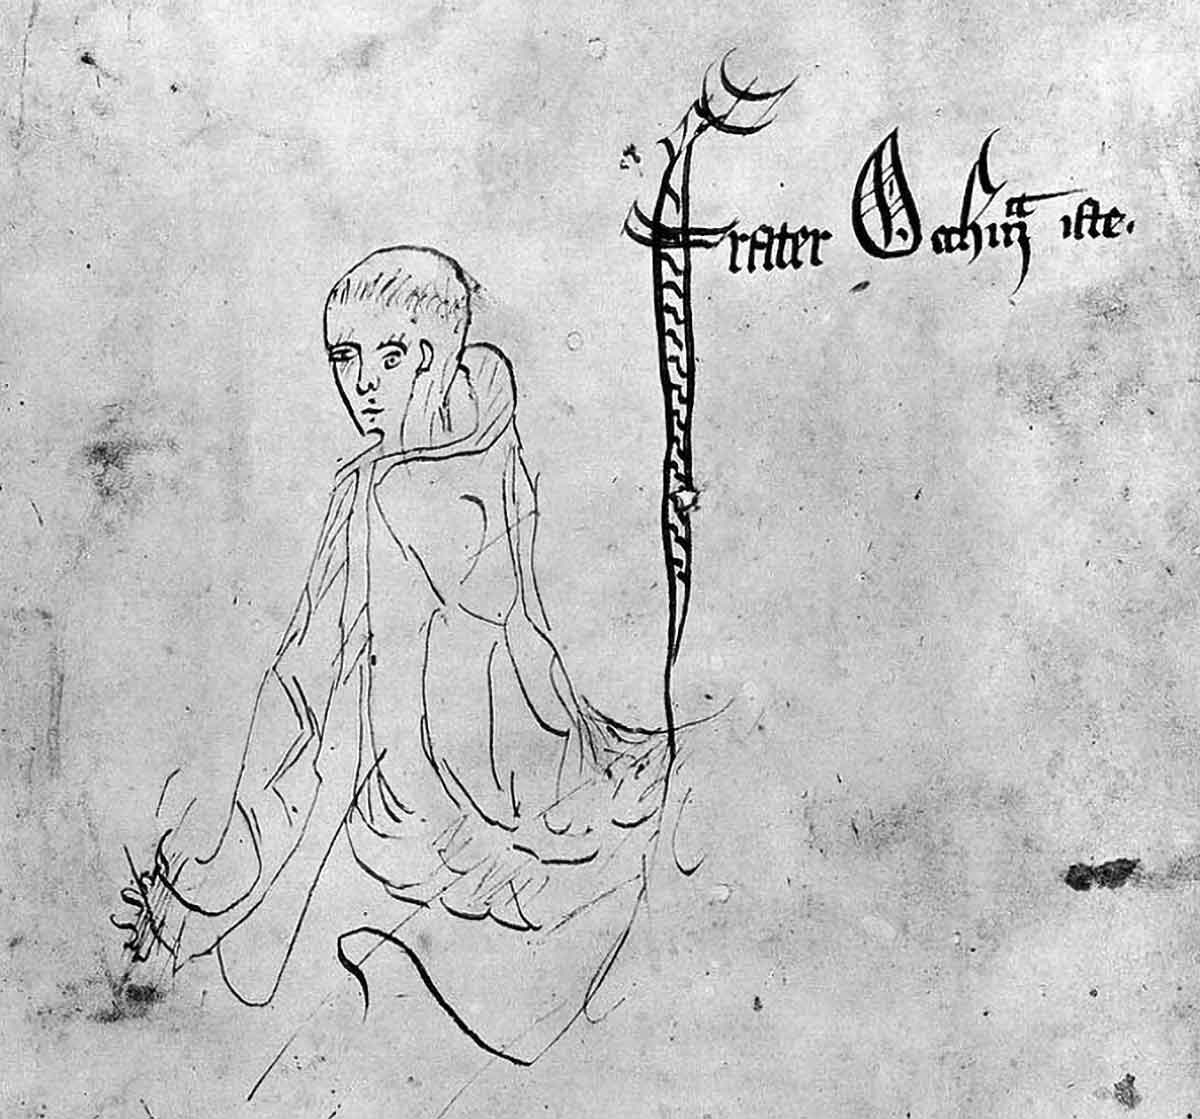 frater Occhim iste.